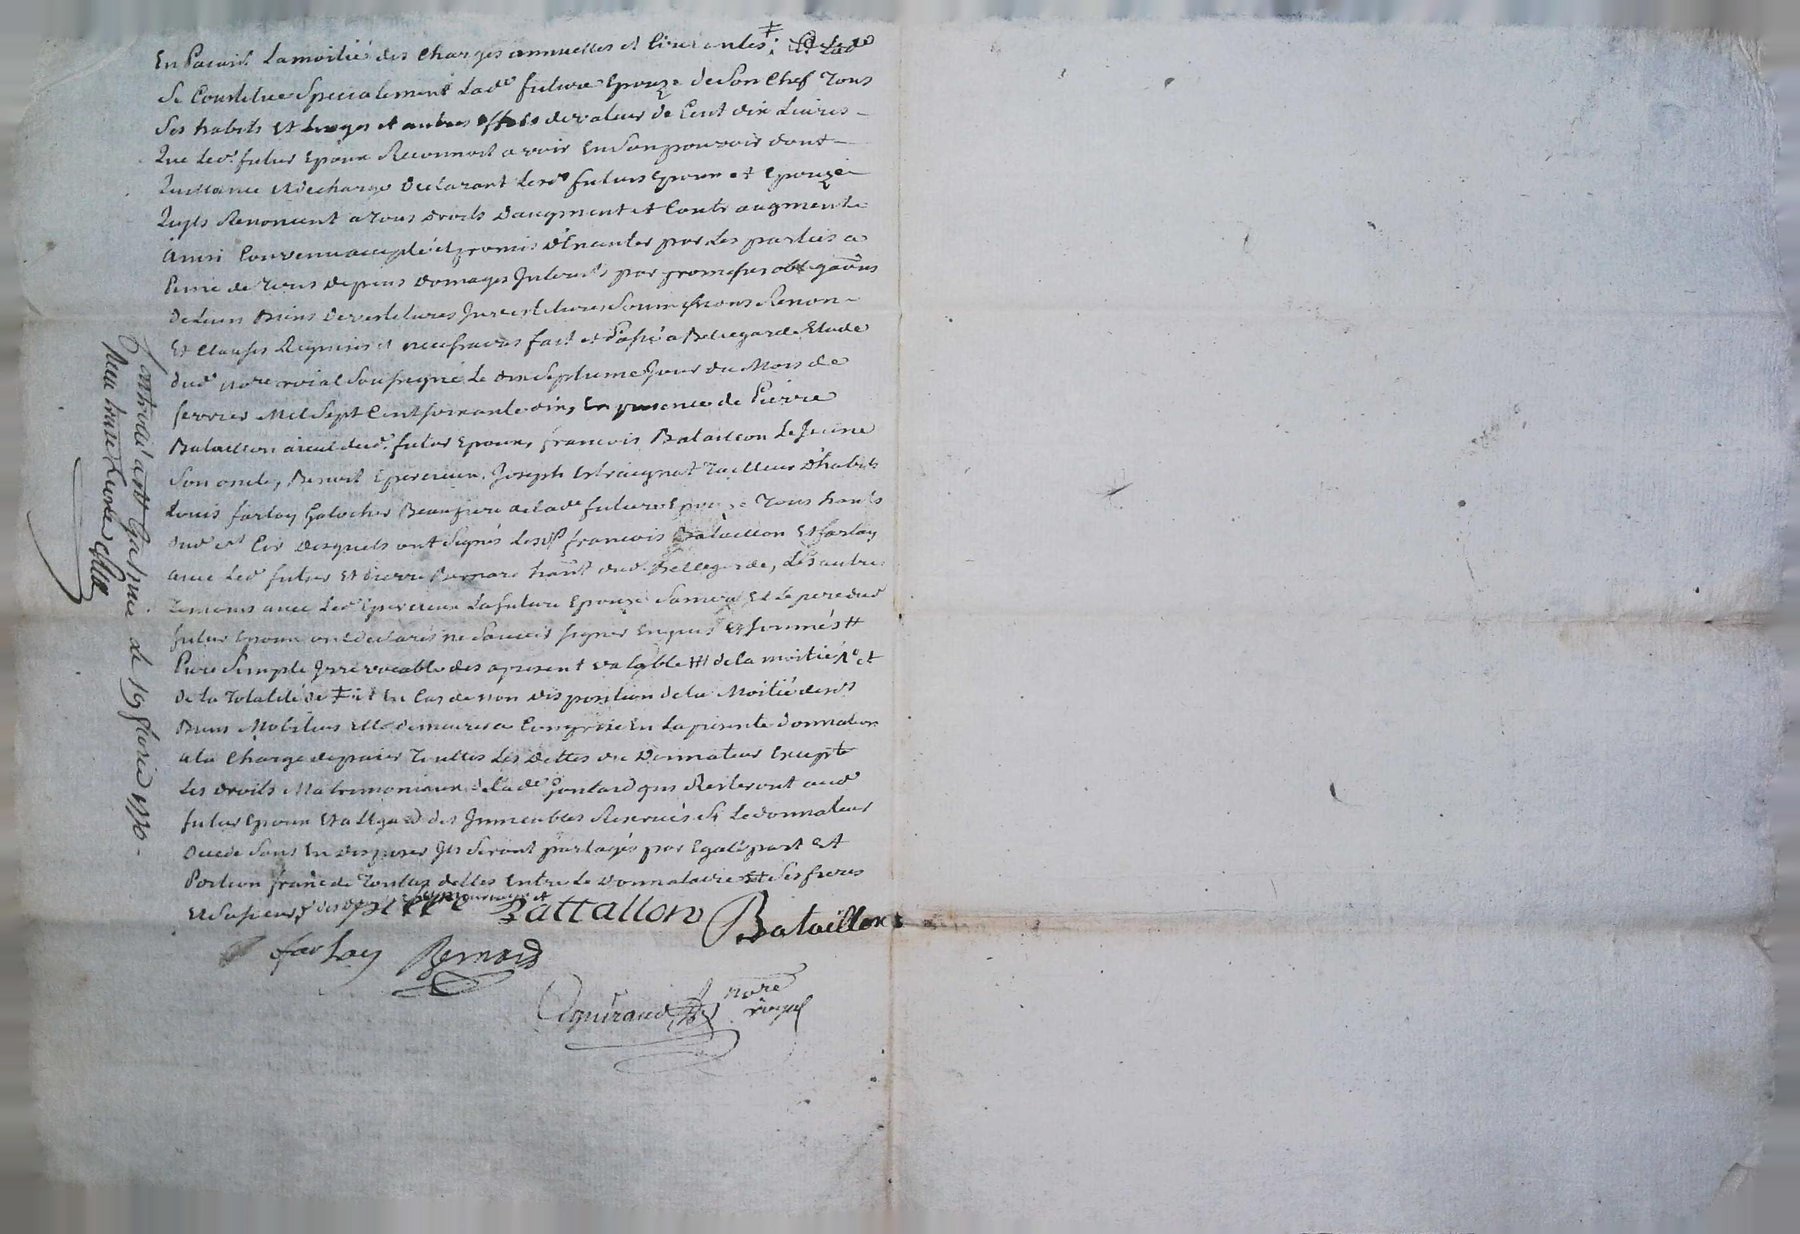 En paiant la moitié des charges annuelles et courantes ‡ :
Se Constitue Specialement lade future Epouze de Son Chef Tous
Ses habits Et linges et autres effets de valeur de Cent dix Livres
Que led. futur Epoux Reconnoit avoir En Son pouvoir dont
Quittance et decharge Declarant lesd. futurs Epoux et Epouze
Quils Renoncent a Tous droits Daugment et Contr augment
Ainsi Convenu accepté et promis par les parties a
Peine de Tous depens domages Interets par promesses obligaons
de Leurs Biens devestitures Investitures Soumissions Renon
Et Clauses Requises et necessaires fait et Passé a Bellegarde Etude
dud. nore roial Soussigné Le dix Septieme Jour du Mois de
fevrier Mil Sept Cent soixante dix, En presence de Pierre
Bataillon aieul dud. futur Epoux, francois Bataillon le Jeune
Son oncle, Benoit Epercieux, Joseph Tailleur D'habits
Louis farlay Galocher Beaufrere de lade future Epouze Tous hants
dud. desquels ont Signés lesd. francois Bataillon Et farlay
avec led. futur Et Pierre Bernard hant dud. Bellegarde, Les autres
Temoins avec led. Epercieux La future Epouze Sa mere Et le pere dud.
futur Epoux ont declarés ne Scavoir signer Enquis Et sommés #
Pure Simple Irrevocable des apresent valable de la moitié
De la Totalité de ‡ et En Cas de non disposition de la Moitié desds
Biens Mobiliers elle demeurera Comprise En la presente donnation
a la Charge de paier Touttes les dettes du Donnateur Excepté
Les droits Matrimoniaux de lade Goutard qui Resteront aud.
futur Epoux Et a l'Egard des Immeubles Reservés Si le donnateur
decede Sans En disposer Ils Seront partagés par Egale part Et
Portion franc de Touttes dettes Entre le donnataire Et Ses freres
Et Soeurs
Battallon Bataillon
farlay Bernard
nore
royal
Controllé a St Galmier le 19 fevrier 1770